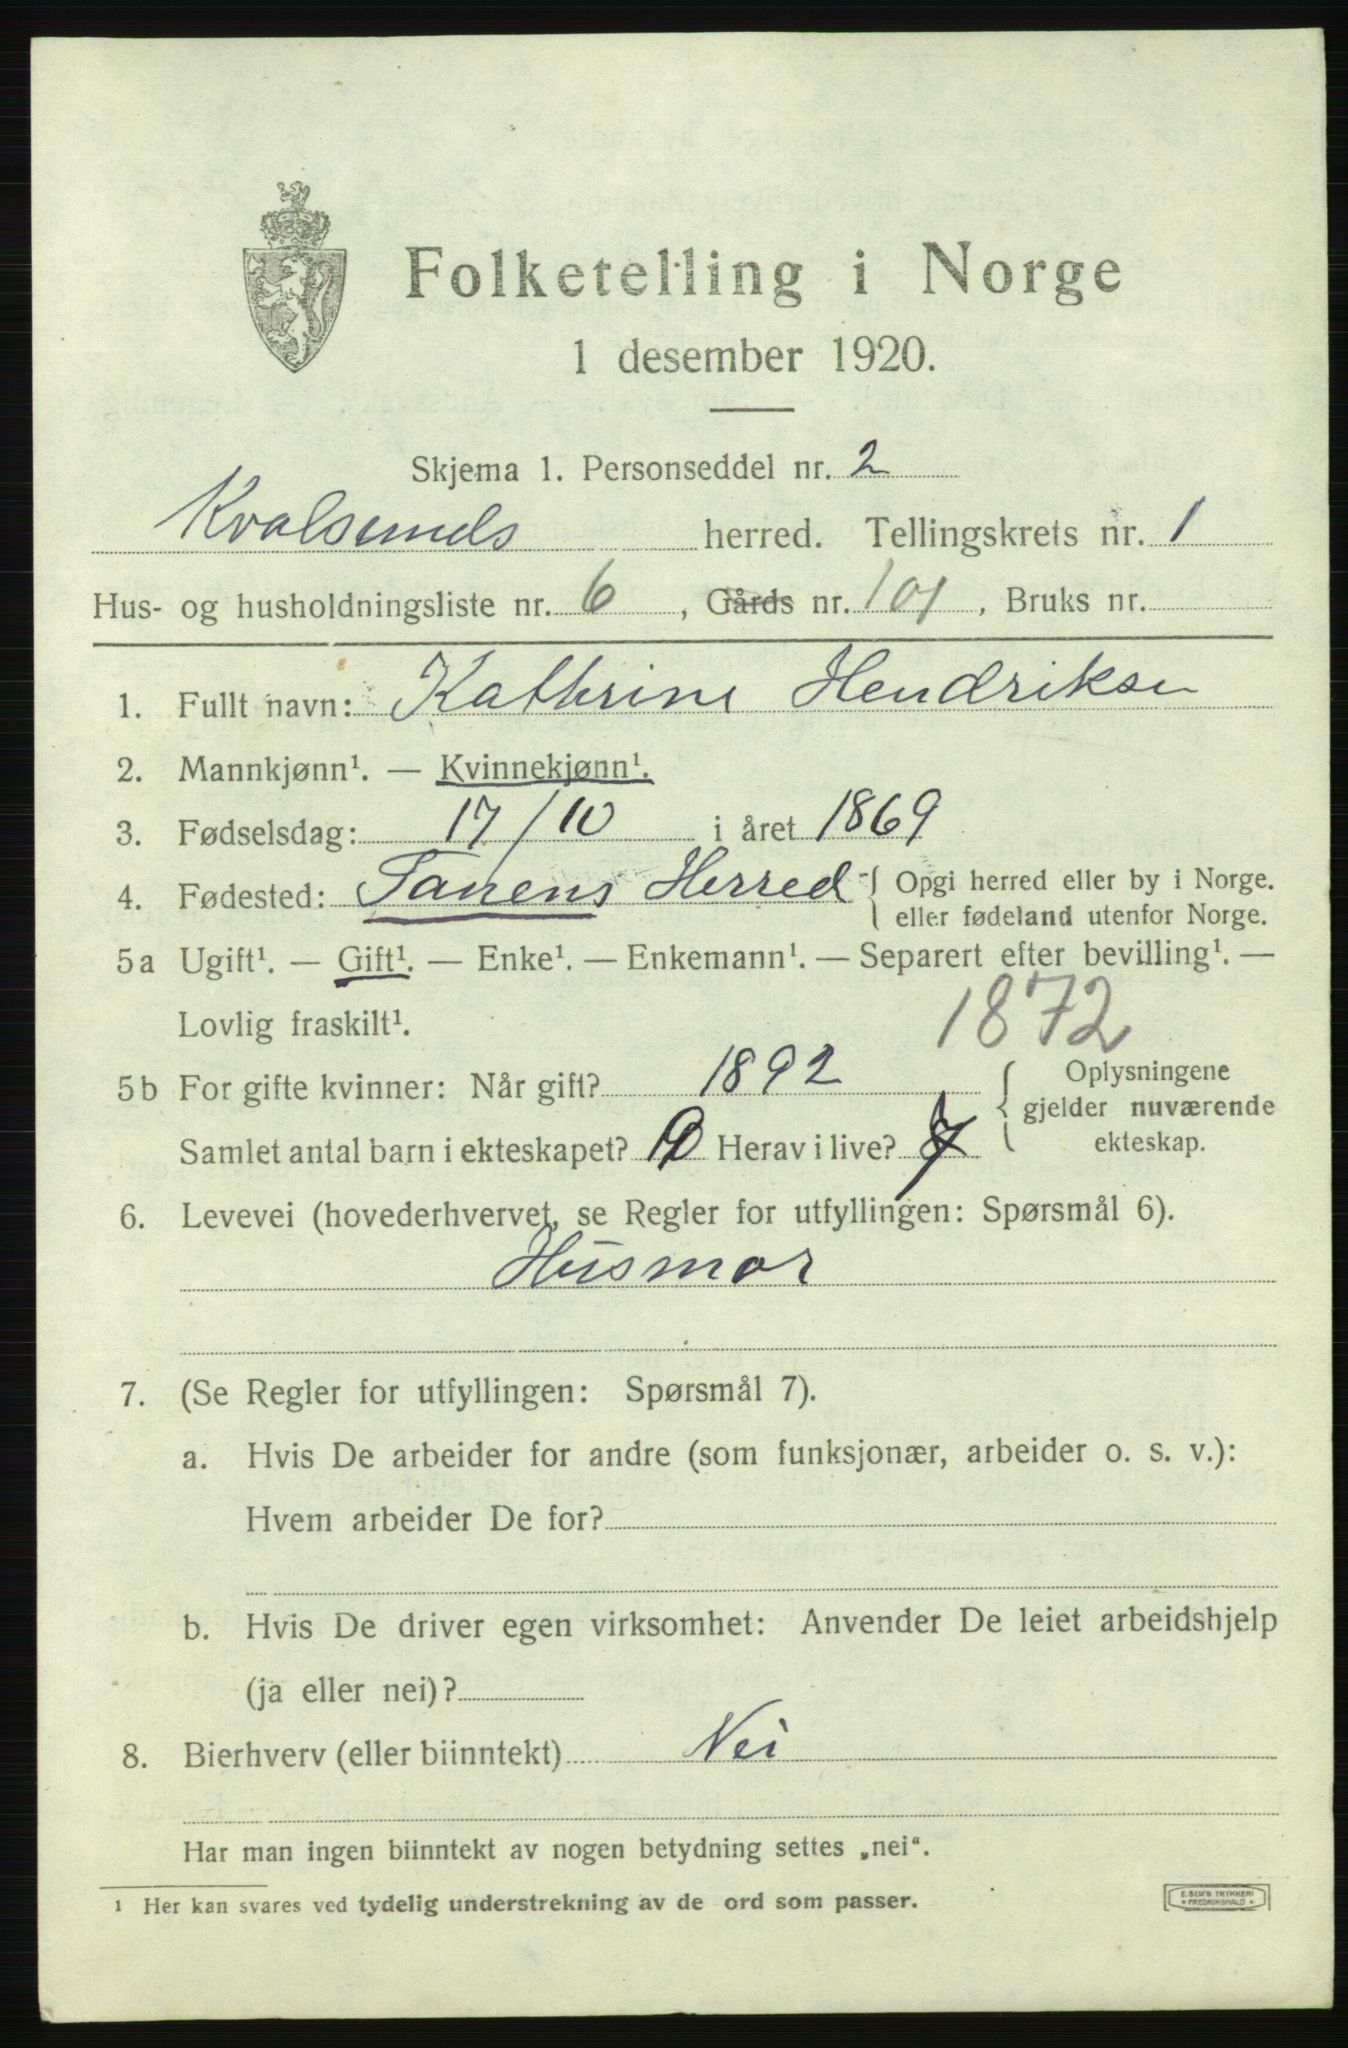 Folketelling i Norge
1 desember 1920.
Skjema 1. Personseddel nr. 2
Kvalsunds herred. Tellingskrets nr. 1
Hus- og husholdningsliste nr. 6, Gårds nr. 101, Bruks nr.
1. Fullt navn: Kathrine Hendriksen
2. Mannkjønn¹. — Kvinnekjønn¹.
3. Fødselsdag: 17/10 i året 1869
4. Fødested: Tanens Herred { Opgi herred eller by i Norge.
eller fødeland utenfor Norge.
5a Ugift¹. — Gift¹. — Enke¹. — Enkemann¹. — Separert efter bevilling¹. —
Lovlig fraskilt¹. 1872
5b For gifte kvinner: Når gift? 1892 { Oplysningene
gjelder nuværende
ekteskap.
Samlet antal barn i ekteskapet? Herav i live? 7
6. Levevei (hovederhvervet, se Regler for utfyllingen: Spørsmål 6).
Husmor
7. (Se Regler for utfyllingen: Spørsmål 7).
a. Hvis De arbeider for andre (som funksjonær, arbeider o. s. v.):
Hvem arbeider De for?
b. Hvis De driver egen virksomhet: Anvender De leiet arbeidshjelp
(ja eller nei)?
8. Bierhverv (eller biinntekt) Nei
Har man ingen biinntekt av nogen betydning settes „nei“.
¹ Her kan svares ved tydelig understrekning av de ord som passer.
E. SEM'S TRYKKERI
FREDRIKSHALD